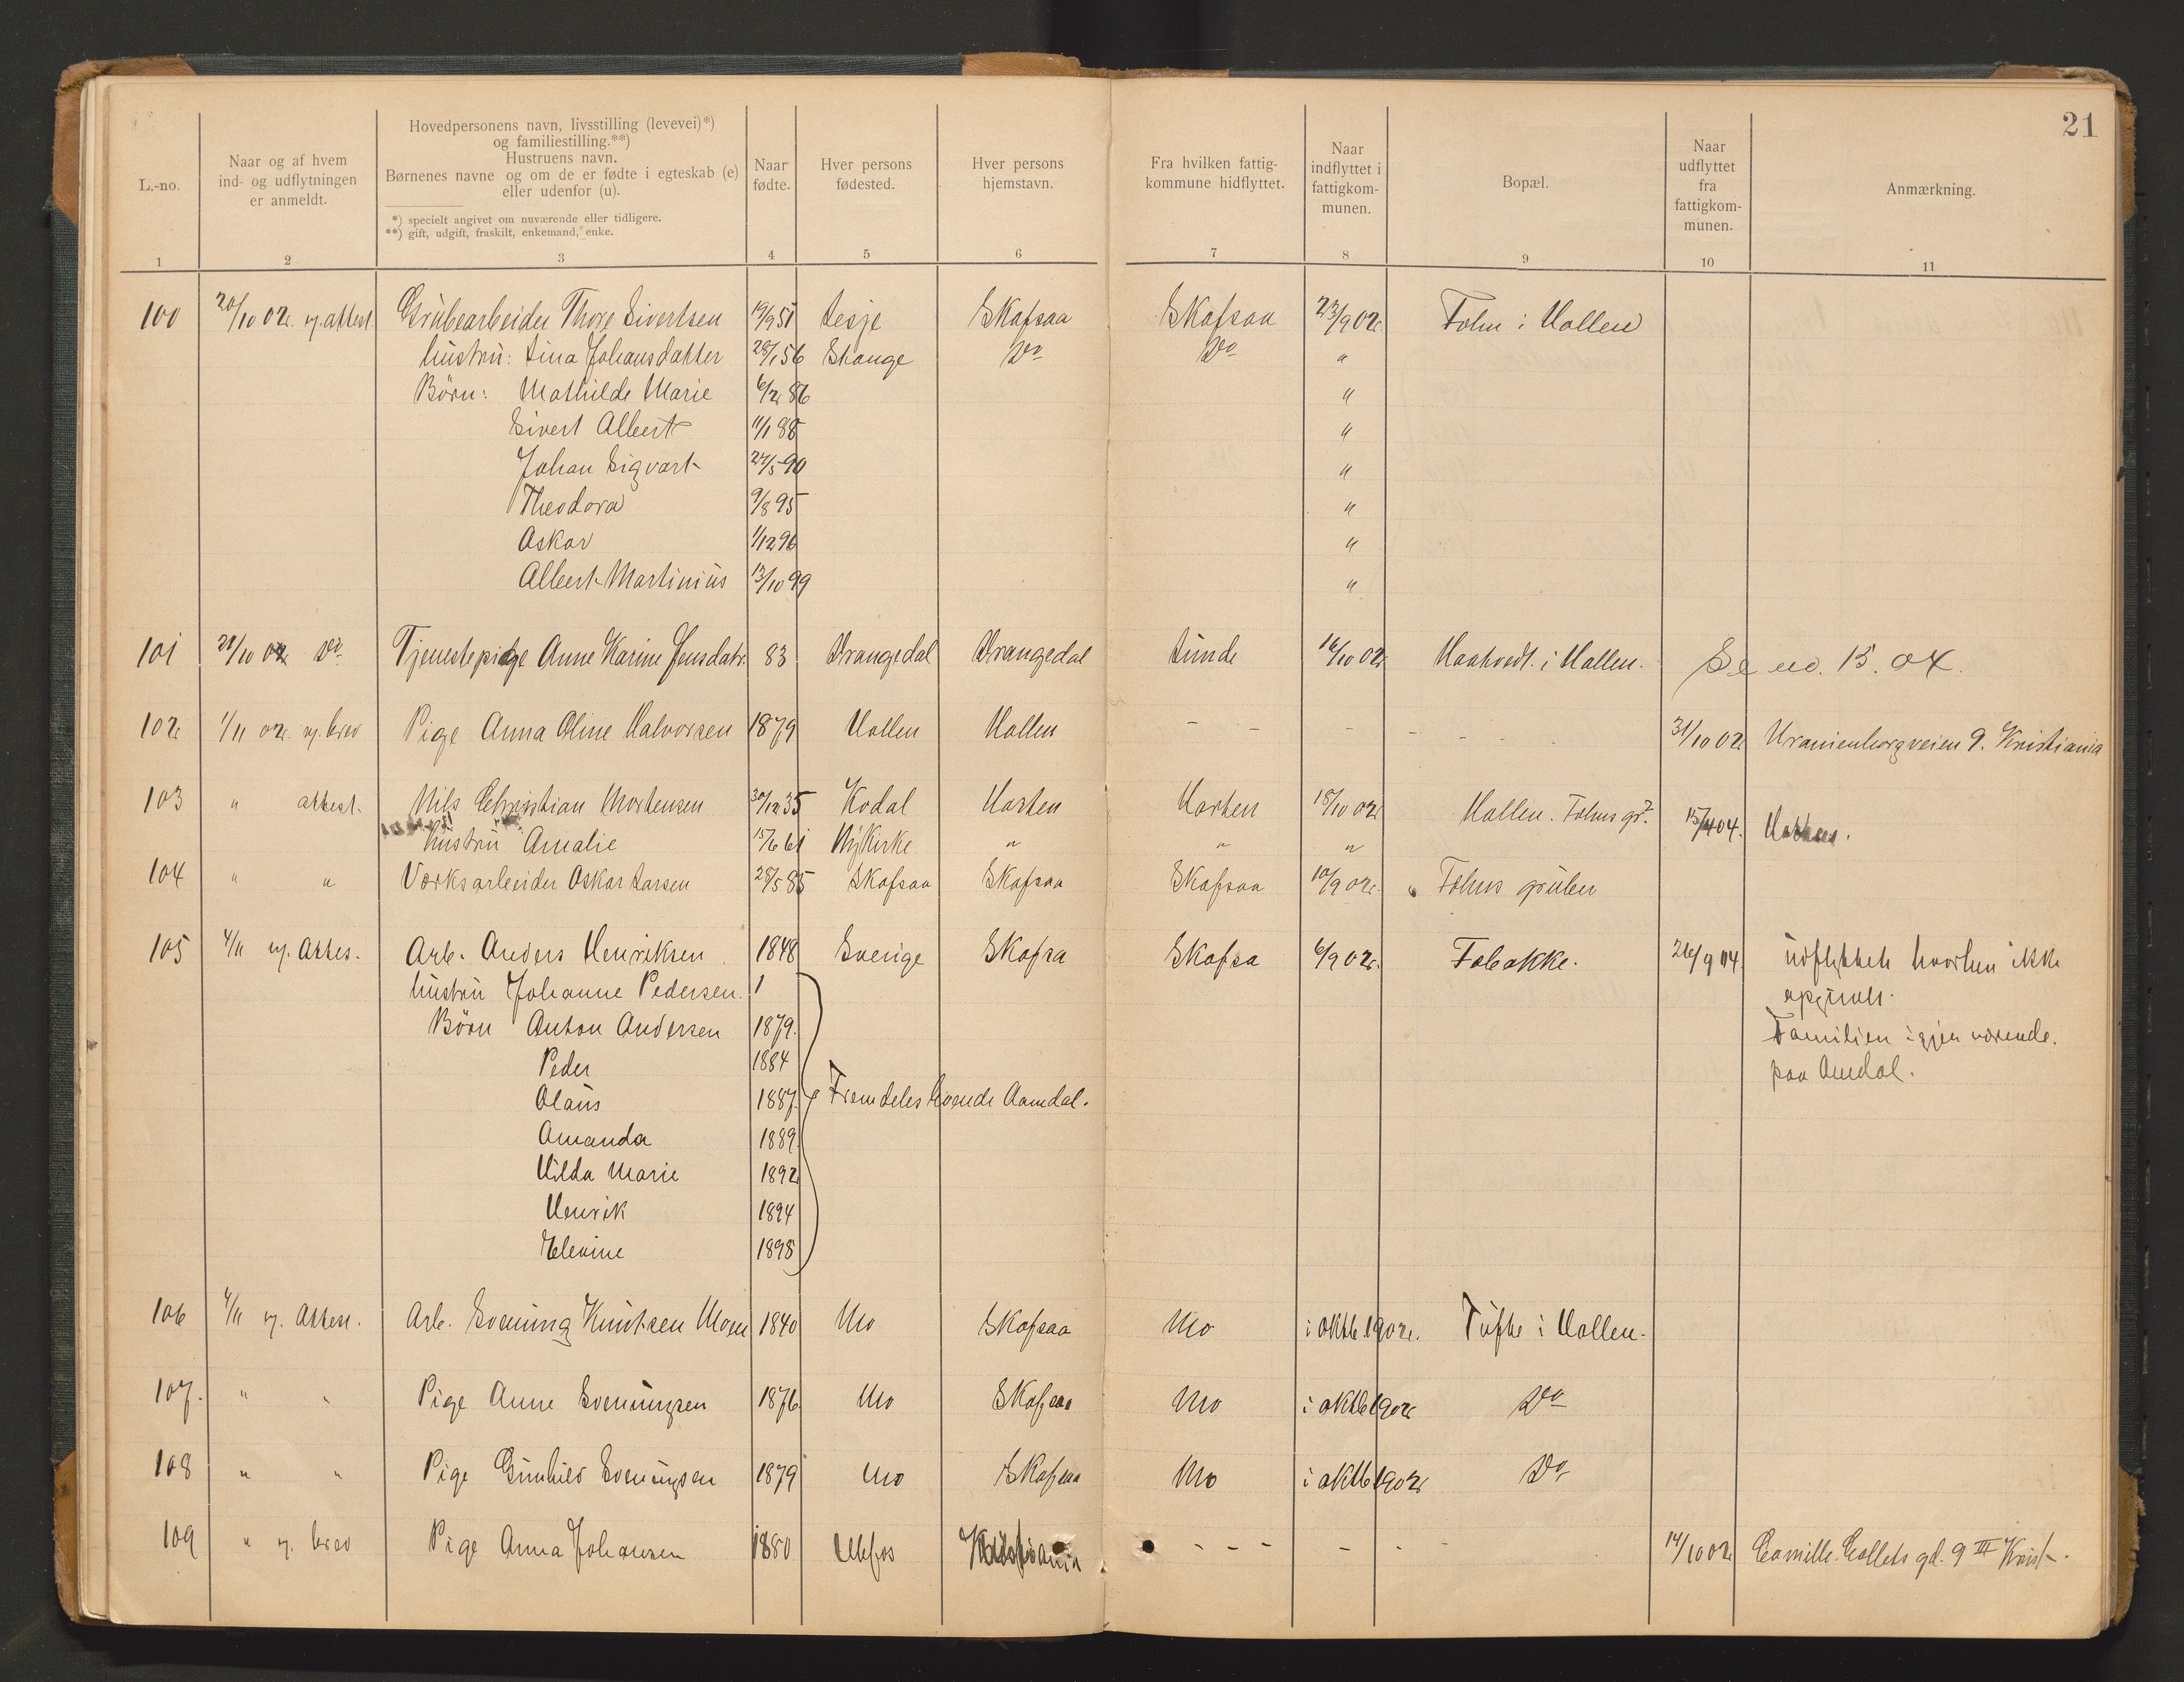 21
L.-no.
Naar og af hvem
ind- og udflytningen
er anmeldt.
Hovedpersonens navn, livsstilling (levevei)*)
og familiestilling.**)
Hustruens navn.
Børnenes navne og om de er fødte i egteskab (e)
eller udenfor (u).
*) specielt angivet om nuværende eller tidligere.
**) gift, udgift, fraskilt, enkemand, enke.
Naar
fødte.
Hver persons
fødested.
Hver persons
hjemstavn.
Fra hvilken fattig-
kommune hidflyttet.
Naar
indflyttet i
fattigkom-
munen.
Bopæl.
Naar
udflyttet
fra
fattigkom-
munen.
Anmærkning.
1 2 3 4 5 6 7 8 9 10 11
100 20/10 02. attest. Grubearbeider Thore Sivertsen 19/9 51 Lesje Skafsaa Skafsaa 23/9 02 i Hollen
hustru: Lina Johansdatter 28/1 56 Stange Do Do "
Børn: Mathilde Marie 6/2 86 "
Sivert Albert 11/1 88 "
Johan Sigvart 24/5 90 "
Theodora 9/8 95 "
Oskar 1/12 96 "
Albert Martinius 13/10 99 "
101 Do Tjenestepige Anne Karine Jensdatr. 83 Drangedal Drangedal Lunde 16/10 02 i Hollen. Se no. 15. 04.
102 1/11 02. brev Pige Anna Oline Halvorsen 1879 Hollen Hollen - - - - - - 31/10 02 Uranienborgveien 9. Kristiania
103 " attest. Nils Christian Mortensen 30/12 35 Kodal Horten Horten 18/10 02 Hollen. 04.
hustru Amalie 15/6 61 Nykirke " " "
104 " " Verksarbeider Oskar Larsen 28/5 85 Skafsaa Skafsaa Skafsaa 10/9 02. gruber
105 4/11 Attes. Arb. Anders Henriksen 1848 Sverige Skafsa Skafsa 6/9 02. Fobakke. 26/9 04. udflyttet hvorhen ikke
hustru Johanne Pedersen. 1 opgivet.
Børn Anton Andersen 1879. Familien igjen værende.
Peder 1884 paa Amdal.
Olaus 1887. Fremdeles boende Aamdal.
Amanda 1889.
Hilda Marie 1892
Henrik 1894
Elevine 1898
106 4/11 Attest. Arb. Svenung Knutsen Moen 1840 Mo Skafsaa Mo i oktb. 1902. Tufte i Hollen.
107. " " Pige Anne Svenungsen 1876 Mo Skafsaa Mo i oktb 1902 Do
108 " " Pige Gunhild Svenungsen 1879 Mo Skafsaa Mo i oktb 1902 Do
109 " brev Pige Anna Johansen 1880 Ulefos Kristiania - - - - - - 14/10 02 Camilla Collets gd. 9 III Krist.